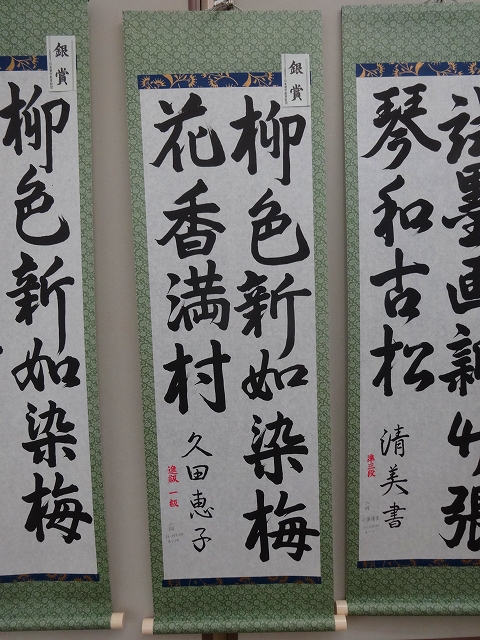 銀賞
柳色新如染梅
花香満村
久田恵子
進級 一級
銀賞
柳色新如染梅
琴和古松
清美書
準三段